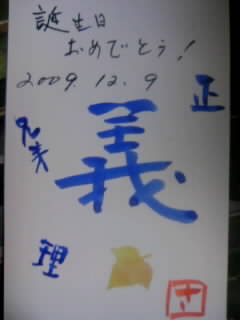 誕生日
おめでとう!
2009. 12. 9
正
義
理